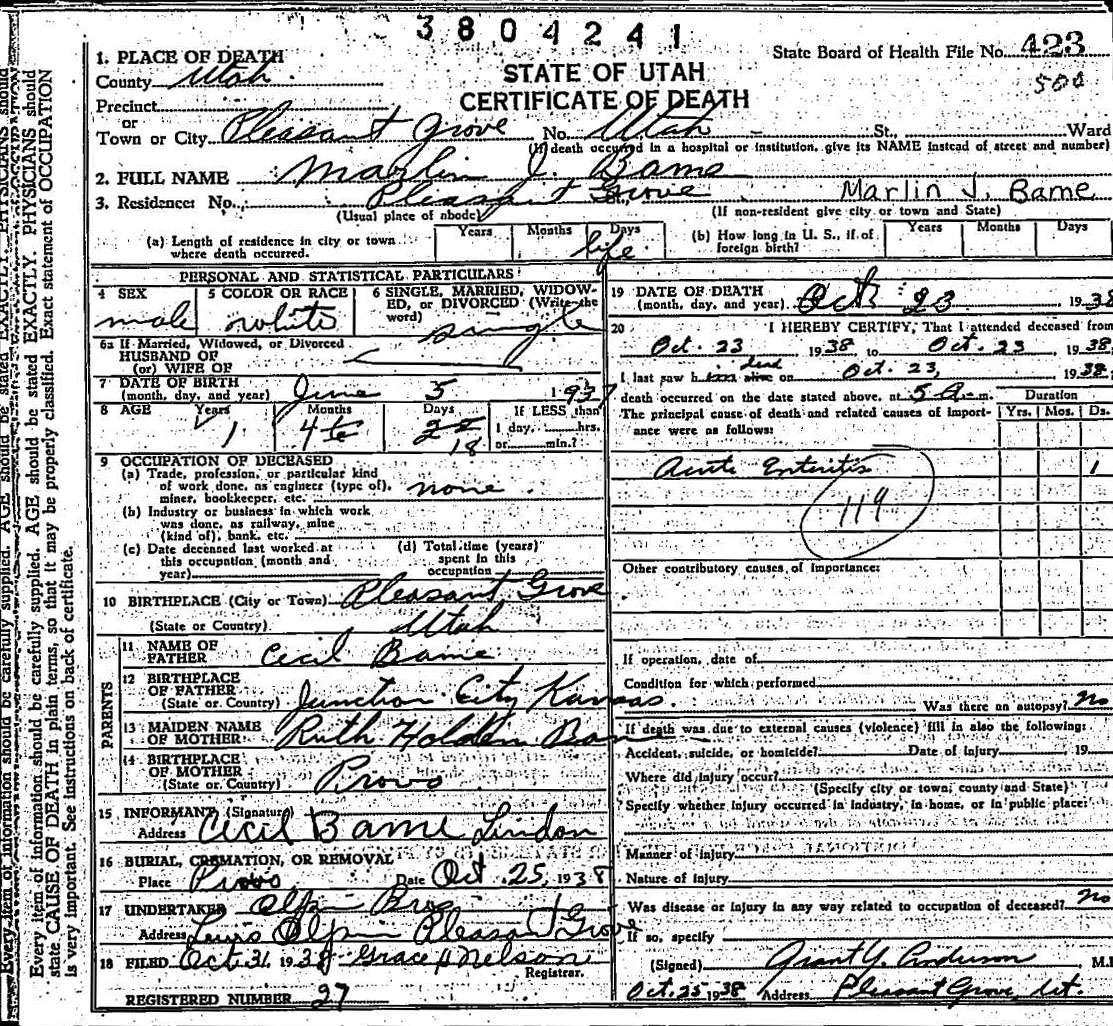 3804241
State Board of Health File No. 423
500
STATE OF UTAH
CERTIFICATE OF DEATH
1. PLACE OF DEATH
County Utah
Precinct
or
Town or City Pleasant Grove No. Utah St., Ward
(If death occurred in a hospital or institution, give its NAME instead of street and number)
2. FULL NAME Marlin J. Bame
Marlin J. Bame
3. Residence: No. Pleasant Grove
(Usual place of abode) (If non-resident give city or town and State)
(a) Length of residence in city or town where death occurred. Years Months Days life
(b) How long in U. S., if of foreign birth? Years Months Days
PERSONAL AND STATISTICAL PARTICULARS
4 SEX male
5 COLOR OR RACE white
6 SINGLE, MARRIED, WIDOWED, or DIVORCED (Write the word) single
6a If Married, Widowed, or Divorced
HUSBAND OF
(or) WIFE OF
7 DATE OF BIRTH
(month, day, and year) June 5 1937
8 AGE Years 1 Months 4 Days 18
IF LESS than
1 day, hrs.
or min.?
9 OCCUPATION OF DECEASED
(a) Trade, profession, or particular kind
of work done, as engineer (type of),
miner, bookkeeper, etc. none
(b) Industry or business in which work
was done, as railway, mine
(kind of), bank, etc.
(c) Date deceased last worked at
this occupation (month and
year)
(d) Total time (years)
spent in this
occupation
10 BIRTHPLACE (City or Town) Pleasant Grove
(State or Country) Utah
PARENTS
11 NAME OF
FATHER Cecil Bame
12 BIRTHPLACE
OF FATHER
(State or Country) Junction City Kansas.
13 MAIDEN NAME
OF MOTHER Ruth Holden Bame
14 BIRTHPLACE
OF MOTHER
(State or Country) Provo
15 INFORMANT (Signature)
Address Cecil Bame Lindon
16 BURIAL, CREMATION, OR REMOVAL
Place Provo Date Oct. 25, 1938
17 UNDERTAKER Olpin Bros
Address Lewis Olpin Pleasant Grove
18 FILED Oct 31, 1938 Grace H Nelson
Registrar.
REGISTERED NUMBER 27
19 DATE OF DEATH
(month, day, and year) Oct 23, 1938
20 I HEREBY CERTIFY, That I attended deceased from
Oct. 23 1938 to Oct. 23 1938
I last saw h dead alive on Oct. 23, 1938
death occurred on the date stated above, at 5 A. m.
The principal cause of death and related causes of importance were as follows:
Duration
Yrs. Mos. Ds.
Acute Enteritis 1
119
Other contributory causes of importance:
If operation, date of
Condition for which performed
Was there an autopsy? No
If death was due to external causes (violence) fill in also the following:
Accident, suicide, or homicide? Date of injury 19
Where did injury occur?
(Specify city or town, county and State)
Specify whether injury occurred in industry, in home, or in public place:
Manner of injury
Nature of injury
Was disease or injury in any way related to occupation of deceased? No
If so, specify
(Signed) Grant Y. Anderson M.
Oct. 25 1938 Address Pleasant Grove, Ut.
Every item of information should be carefully supplied. AGE should be stated EXACTLY. PHYSICIANS should
state CAUSE OF DEATH in plain terms, so that it may be properly classified. Exact statement of OCCUPATION
is very important. See instructions on back of certificate.